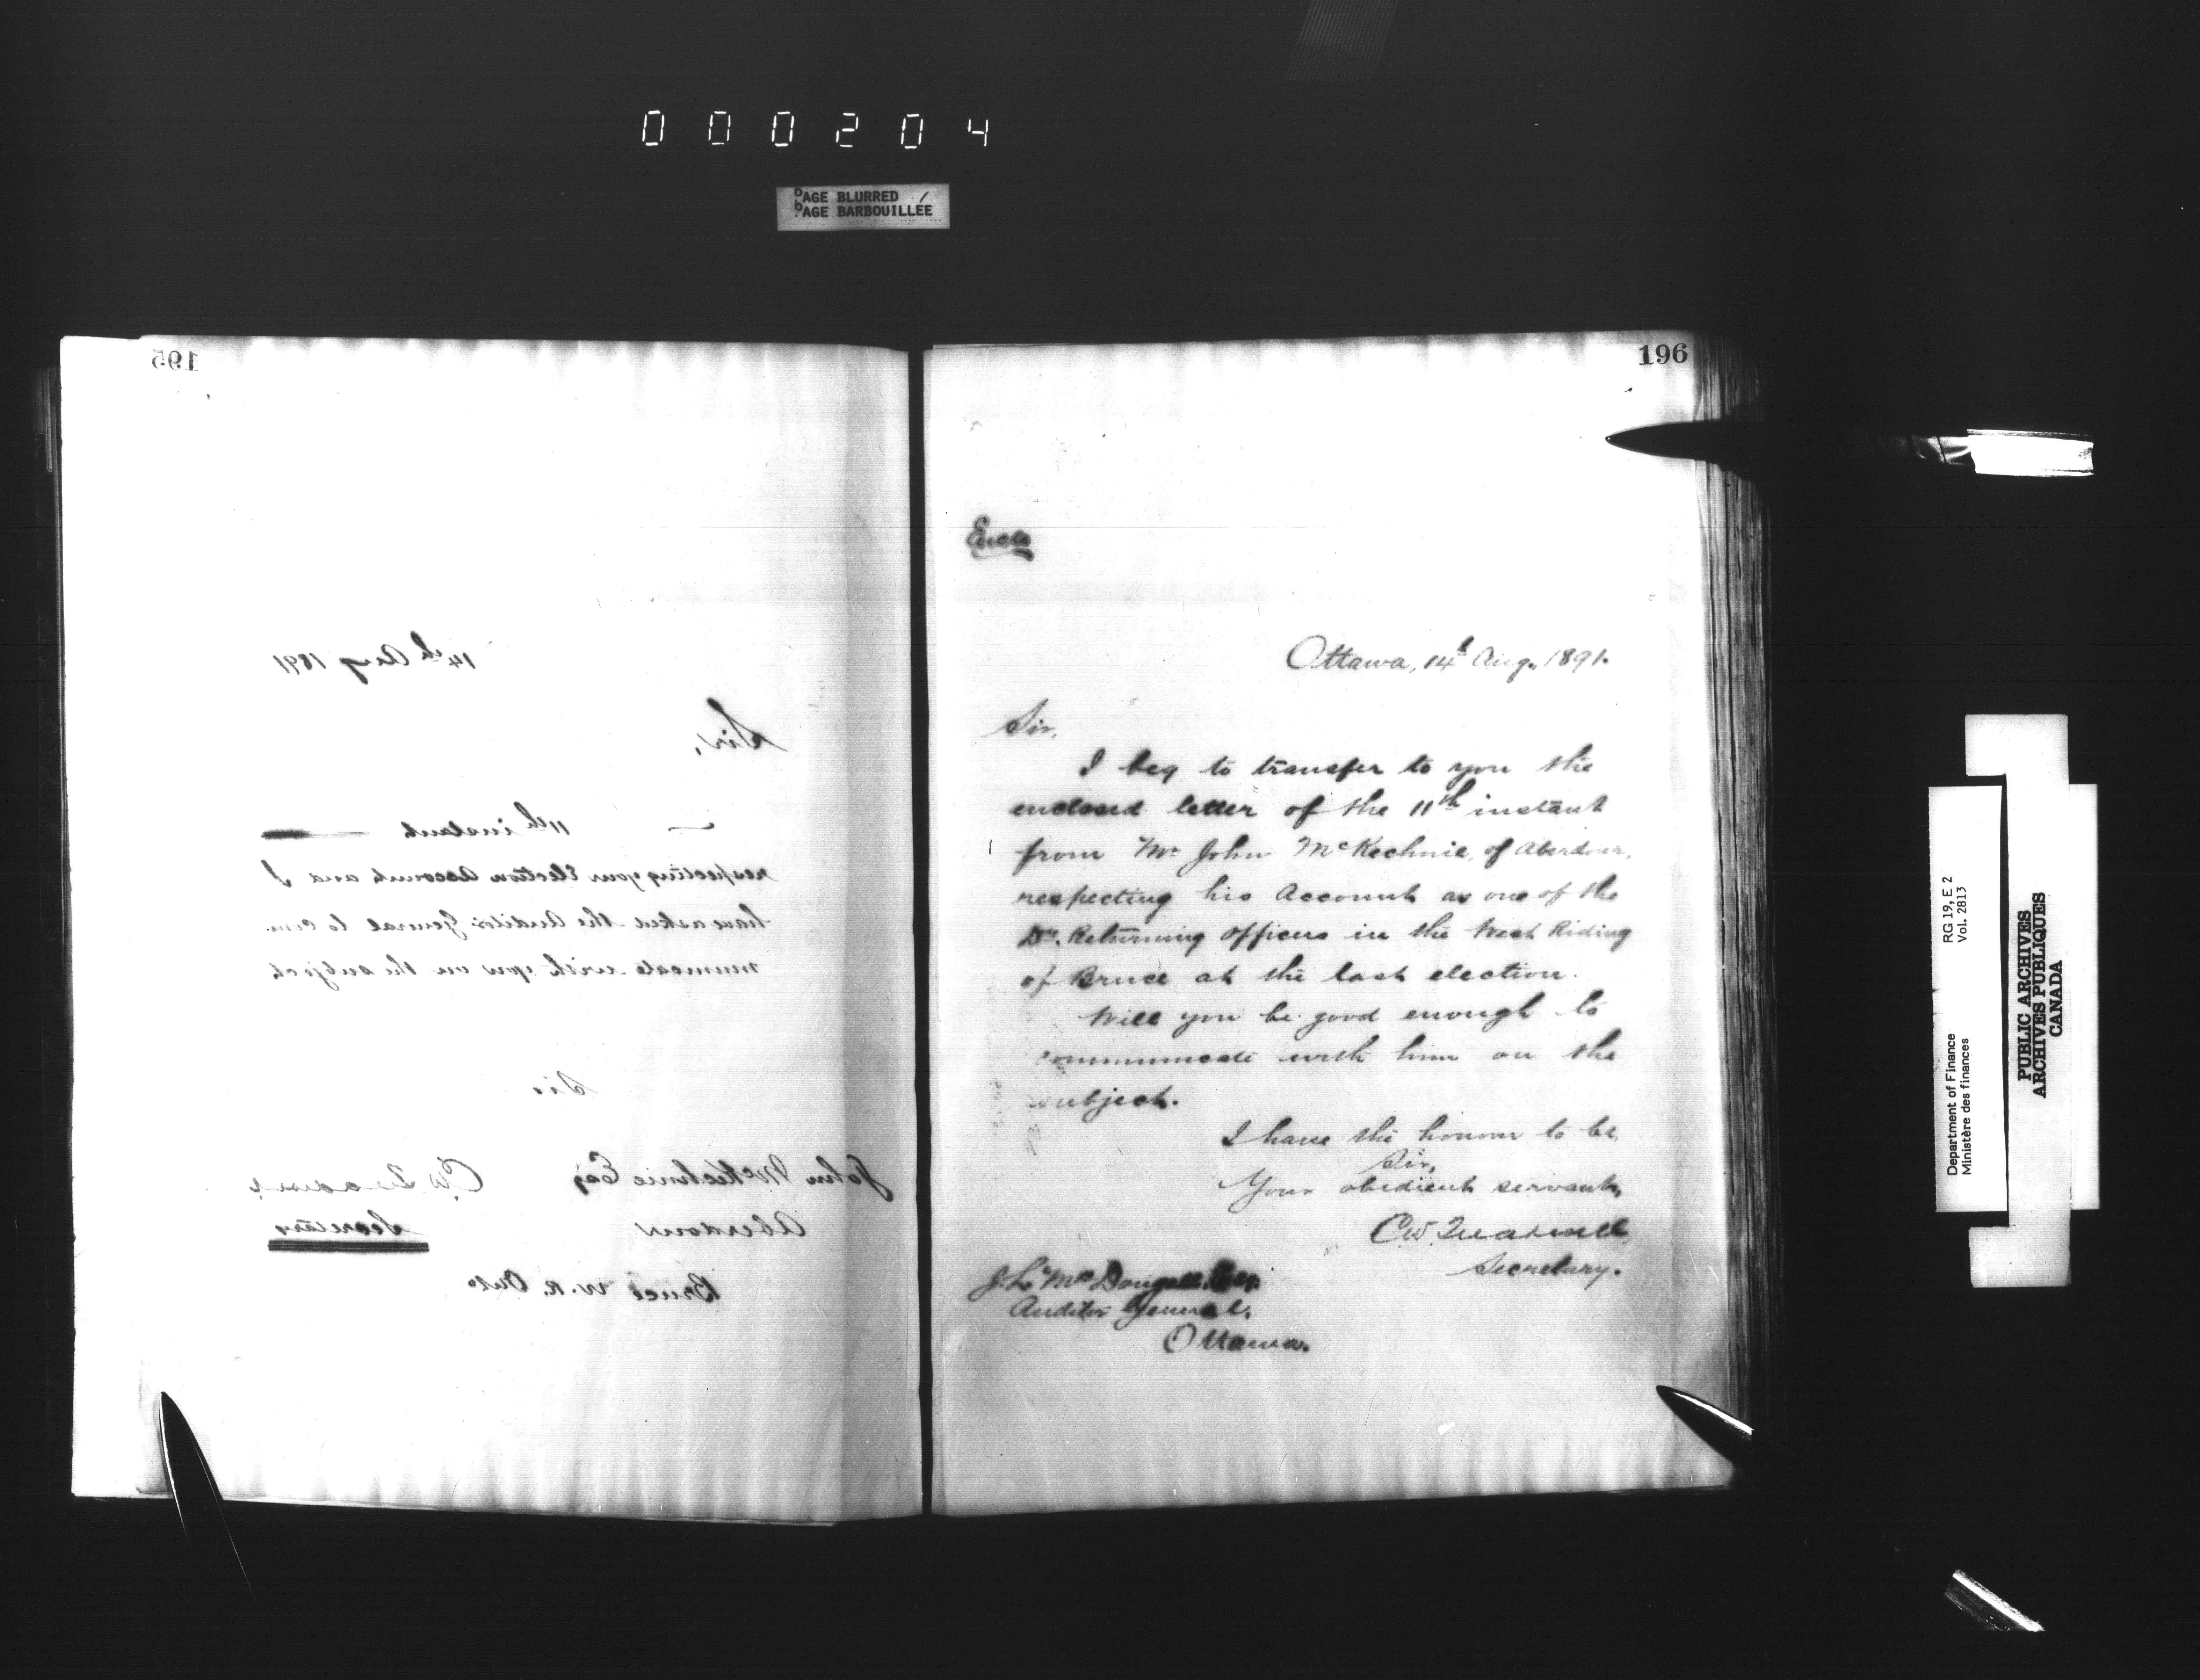 000204
PAGE BLURRED
PAGE BARBOUILLÉE
195
14th Aug 1891
Sir,
11th instant
respecting your Election Account and I
have asked the Auditor General to com
municate with you on the subject
Sir
John McKechnie Esq
Aberdour
Bruce W. R. Onto
C W Treadwell
Secretary
196
Enclo
Ottawa, 14th Aug. 1891.
Sir,
I beg to transfer to you the
enclosed letter of the 11th instant
from Mr John McKechnie, of Aberdour,
respecting his Account as one of the
Dy. Returning Officers in the West Riding
of Bruce at the last election.
Will you be good enough to
communicate with him on the
subject.
I have the honour to be,
Sir,
Your obedient servant,
CW. Treadwell
Secretary.
J. L. McDougall, Esq.
Auditor General,
Ottawa.
Department of Finance
Ministère des finances
RG 19, E 2
Vol. 2813
PUBLIC ARCHIVES
ARCHIVES PUBLIQUES
CANADA